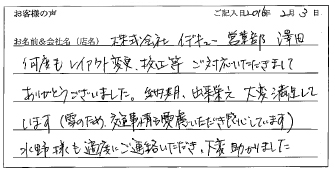 お客様の声 ご記入日2016年 2月 3日
お名前&会社名（店名） 株式会社 イデキュー 営業部 澤田
何度も レイアウト変更、校正等 ご対応いただきまして
ありがとうございました。納期、出来栄え 大変満足して
います（雪のため、交通事情も考慮いただき感謝しています）
水野様も 適度にご連絡いただき、大変助かりました